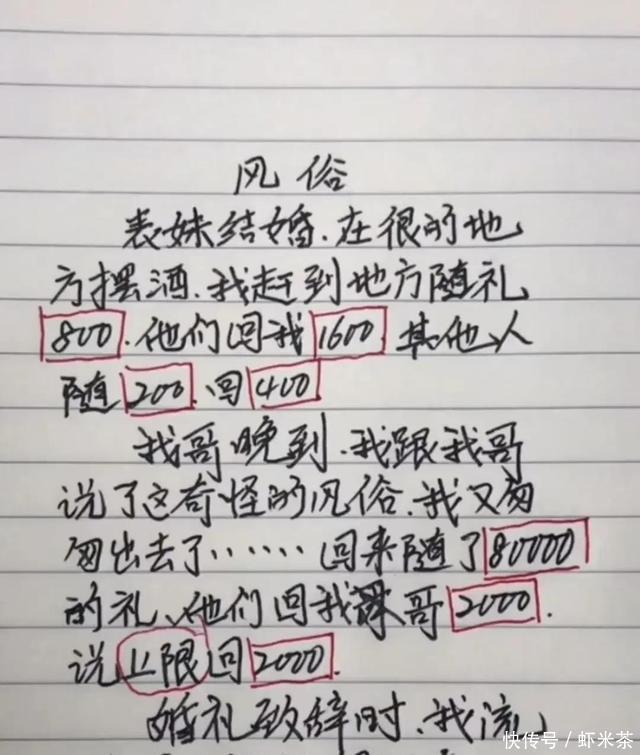 风俗
表妹结婚.在很的地
方摆酒.我赶到地方随礼
800.他们回我1600.其他人
随200.回400
我哥晚到.我跟我哥
说了这奇怪的风俗.我又匆
匆出去了……回来随了80000
的礼、他们回我哥2000.
说上限回2000.
婚礼致辞时.我流
快传号/虾米茶